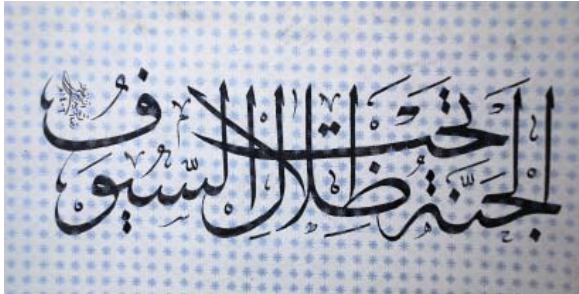 الجنة تحت ظلال السيوف